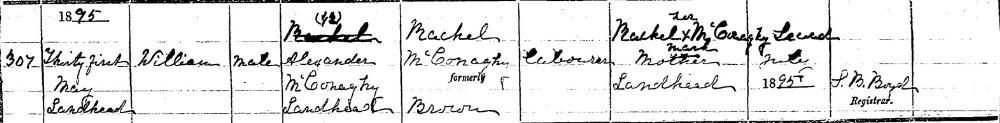 1895
307 Thirty first May Landhead
William
male
(42)
Rachel
Alexander
McConaghy
Landhead
Rachel
McConaghy
formerly
Brown
Labourer
her
Rachel x McConaghy
mark
Mother
Landhead
Second
July
1895
S. B. Boyd
Registrar.